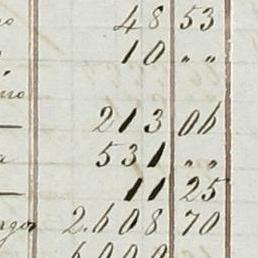 48 53
10 „ „
213 06
531 „ „
11 25
2.608 70